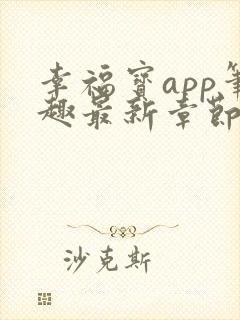 幸福宝app笔
趣最新章节
沙克斯